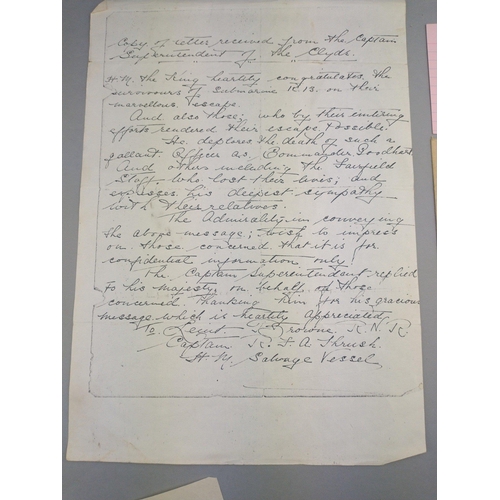 Copy of letter received from the Captain
Superintendent of the Clyde.
H.M. the King heartily congratulates the
survivours of Submarine K.13. on their
marvellous escape.
And also those, who by their untiring
efforts rendered their escape possible.
He deplores the death of such a
gallant Officer as Commander Goodhart.
And others including the Fairfield
Staff who lost their lives; and
expresses his deepest sympathy
with their relatives.
The Admirality in conveying
the above message; wish to impress
on those concerned that it is for
confidential information only.
The Captain Superentendant replied
to his majesty on behalf of those
concerned thanking him for his gracious
message which is heartily appreciated
To Lieut K. Browne R.N.R.
Captain R. F. A. Thrush.
H.M. Salvage Vessel